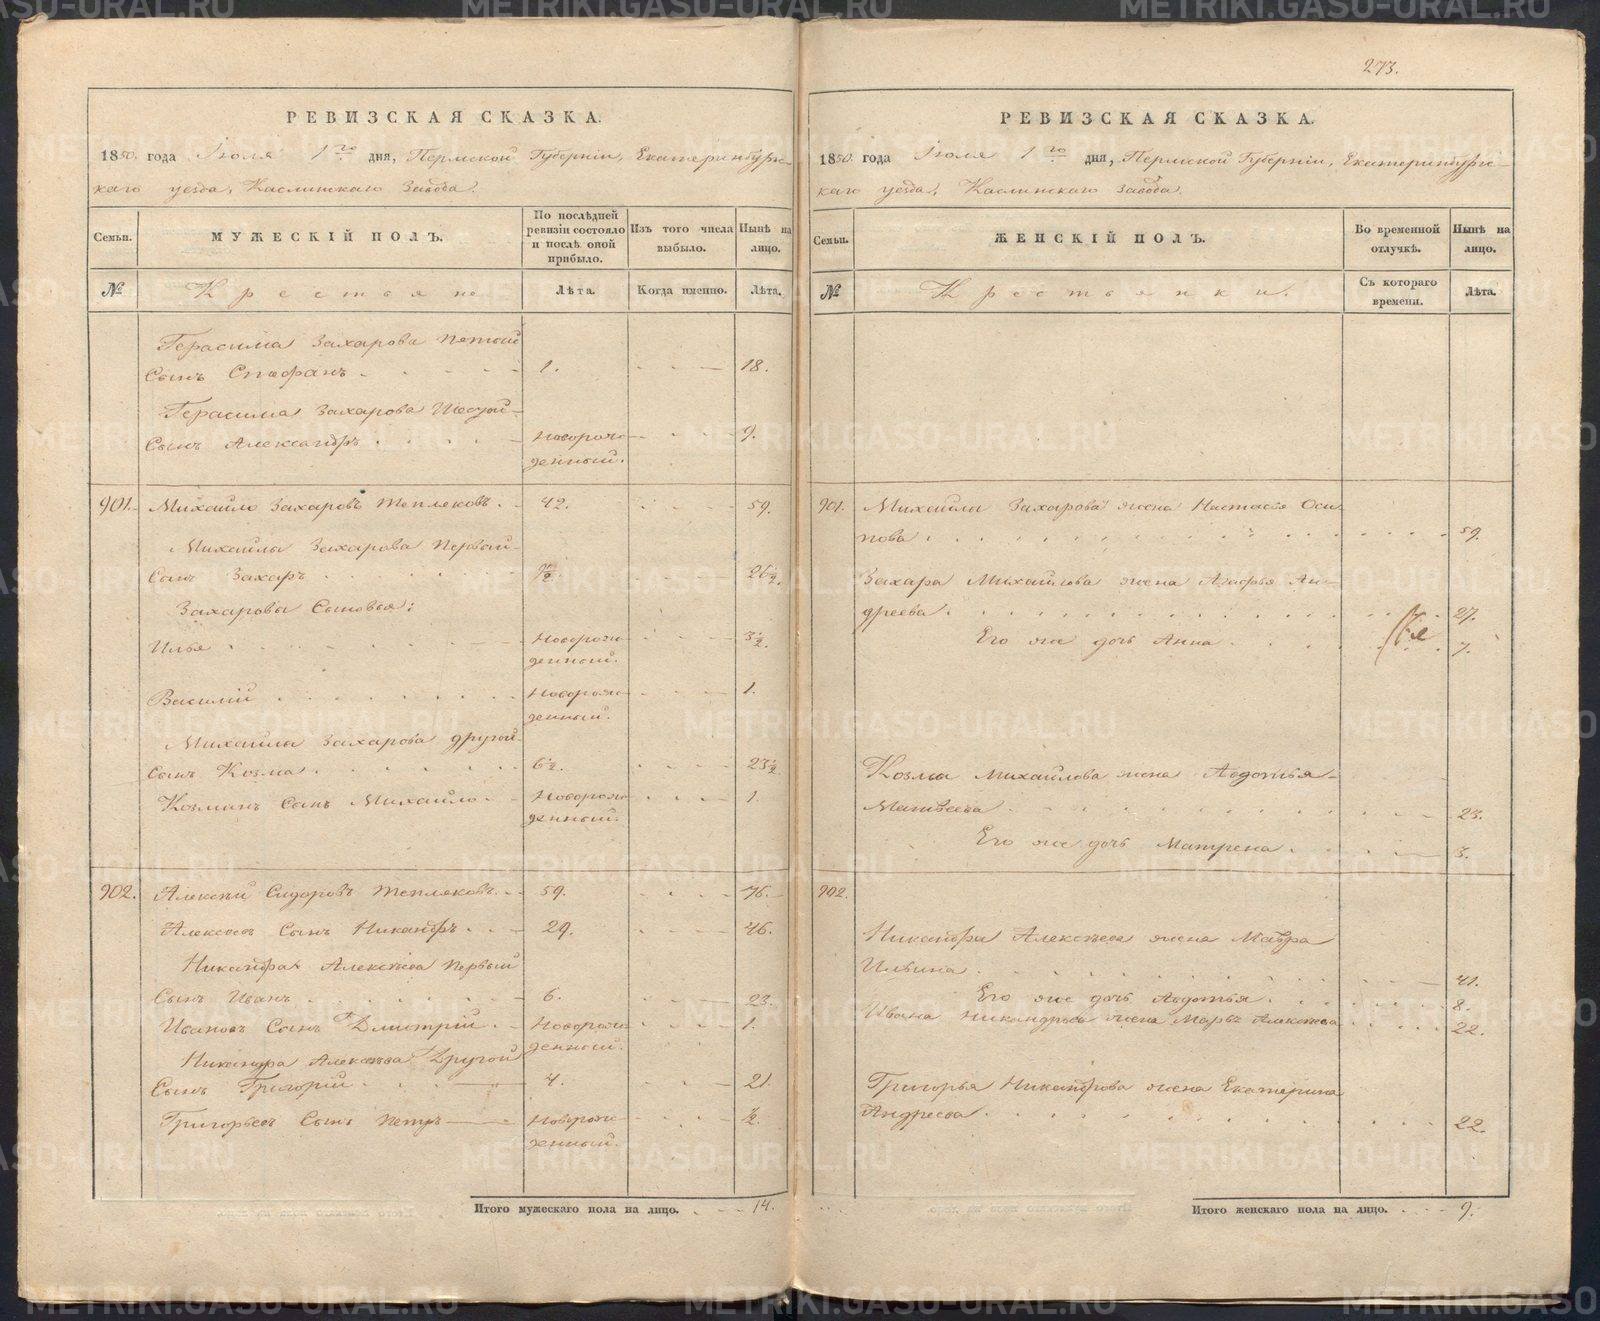 METRIKI.GASO-URAL.RU
273.
РЕВИЗСКАЯ СКАЗКА.
1850. года Іюля 1го дня, Пермской Губерніи, Екатеринбургс-
каго уезда, Каслинскаго Завода.
Семьи.
МУЖЕСКІЙ ПОЛЪ.
По послѣдней ревизіи состояло и послѣ оной прибыло.
Изъ того числа выбыло.
Нынѣ на лицо.
№
Крестьяне
Лѣта.
Когда именно.
Лѣта.
Герасима Захарова пятый
Сынъ Стефанъ 1. 18.
Герасима Захарова Шестой
Сынъ Александръ Новорож- 9.
денный.
901. Михайло Захаровъ Тепляковъ. 42. 59.
Михайлы Захарова Первый
Сынъ Захаръ 9½. 26½.
Захаровы Сыновья:
Илья Новорож- 3½.
денный.
Василій Новорож- 1.
денный.
Михайлы Захарова другой
Сынъ Козма 6½. 23½.
Козминъ Сынъ Михайло Новорож- 1.
денный.
902. Алексѣй Сидоровъ Тепляковъ. 59. 76.
Алексѣевъ Сынъ Никандръ 29. 46.
Никандра Алексѣева первый
Сынъ Иванъ 6. 23.
Ивановъ Сынъ Дмитрій Новорож- 1.
денный.
Никандра Алексѣева Другой
Сынъ Григорій 4. 21.
Григорьевъ Сынъ Петръ Новорож- ½.
денный.
Итого мужескаго пола на лицо. 14.
РЕВИЗСКАЯ СКАЗКА.
1850. года Іюля 1го дня, Пермской Губерніи, Екатеринбургс-
каго уезда, Каслинскаго Завода.
Семьи.
ЖЕНСКІЙ ПОЛЪ.
Во временной отлучкѣ.
Нынѣ на лицо.
№
Крестьянки.
Съ котораго времени.
Лѣта.
901. Михайлы Захарова жена Настасья Оси-
пова 59.
Захара Михайлова жена Агафья Ан-
дреева 27.
Его же дочь Анна 7.
Козмы Михайлова жена Авдотья
Матвеева 23.
Его же дочь Матрена 3.
902.
Никандра Алексѣева жена Мавра
Ильина 41.
Его же дочь Авдотья 8.
Ивана Никандрова жена Марья Алексѣева 22.
Григорья Никандрова жена Екатерина
Андреева 22.
Итого женскаго пола на лицо. 9.